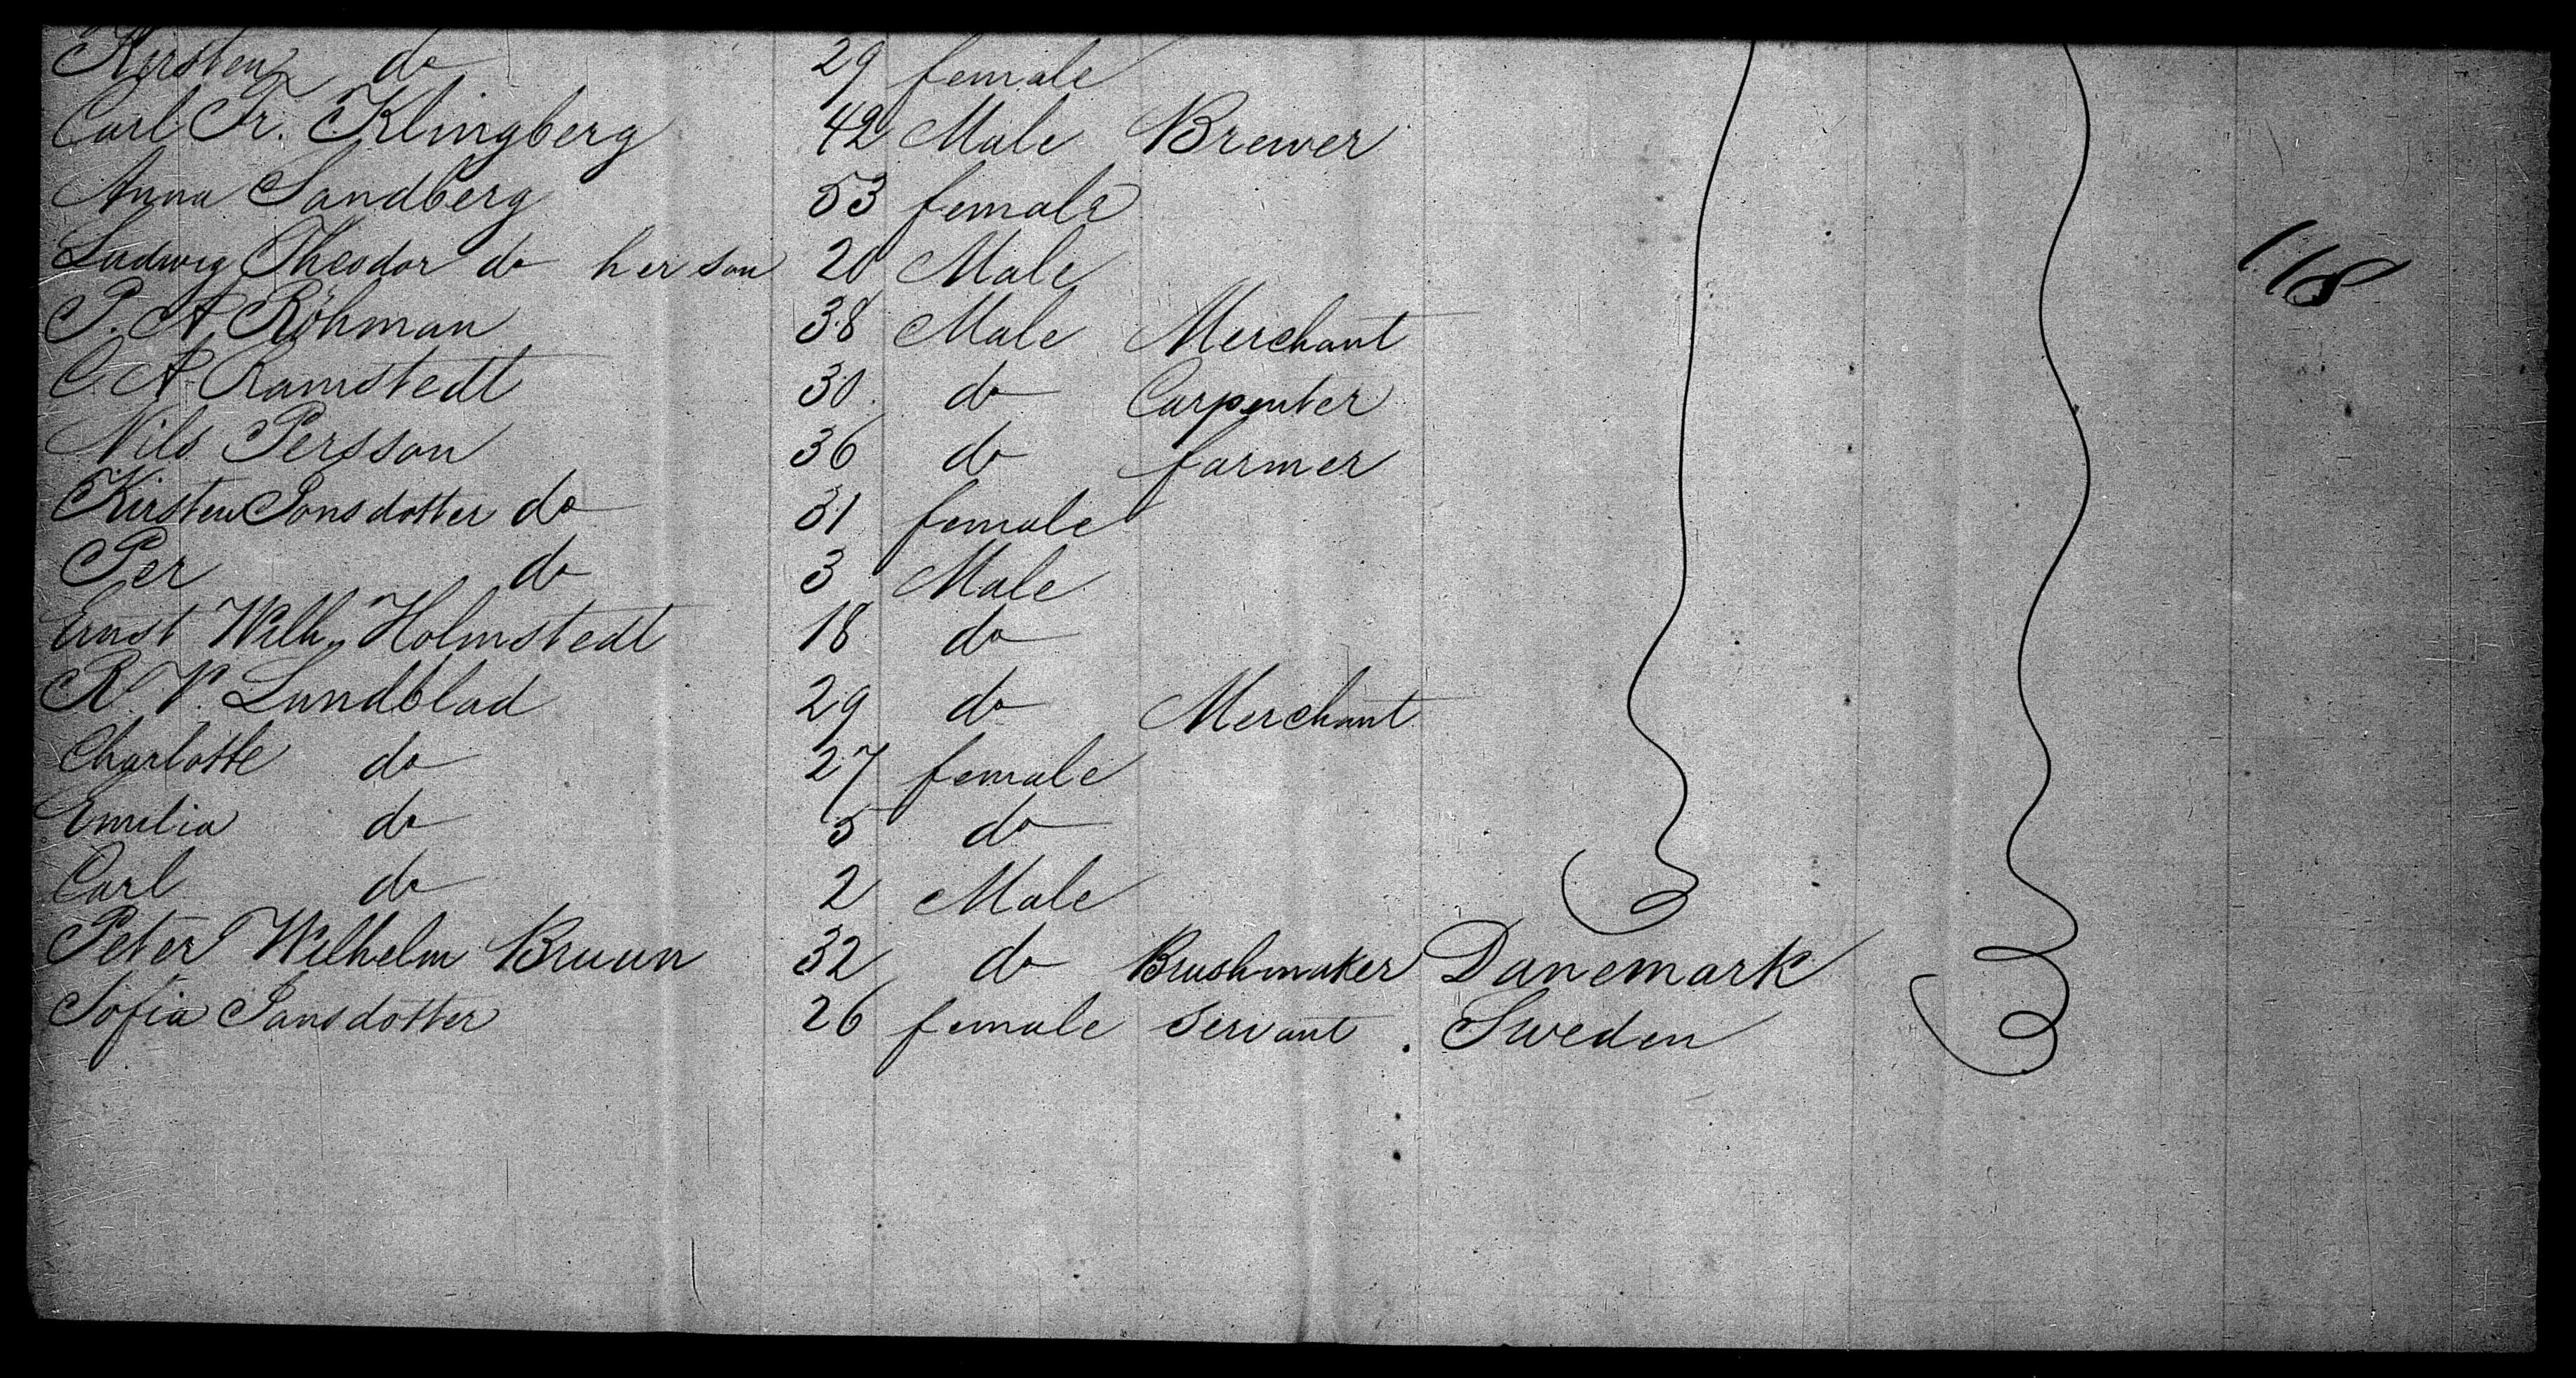 Kersten do 29 female
Carl Fr. Klingberg 42 Male Brewer
Anna Sandberg 53 female
Ludwig Theodor do her son 20 Male
P. A. Röhman 38 Male Merchant
C. A. Ramstedt 30 do Carpenter
Nils Persson 36 do farmer
Kirsten Jonsdotter do 31 female
Per do 3 Male
Ernst Wilh. Holmstedt 18 do
R. V. Lundblad 29 do Merchant
Charlotte do 27 female
Emilia do 5 do
Carl do 2 Male
Peter Wilhelm Bruun 32 do Brushmaker Danemark
Sofia Jansdotter 26 female servant . Sweden
118